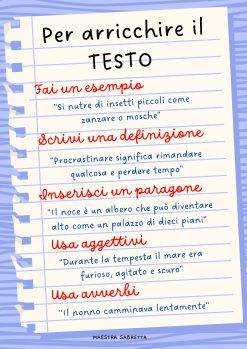 Per arricchire il
TESTO
Fai un esempio
"Si nutre di insetti piccoli come
zanzare o mosche"
Scrivi una definizione
"Procrastinare significa rimandare
qualcosa e perdere tempo"
Inserisci un paragone
"Il noce è un albero che può diventare
alto come un palazzo di dieci piani"
Usa aggettivi
"Durante la tempesta il mare era
furioso, agitato e scuro"
Usa avverbi
"Il nonno camminava lentamente"
MAESTRA SABRETTA